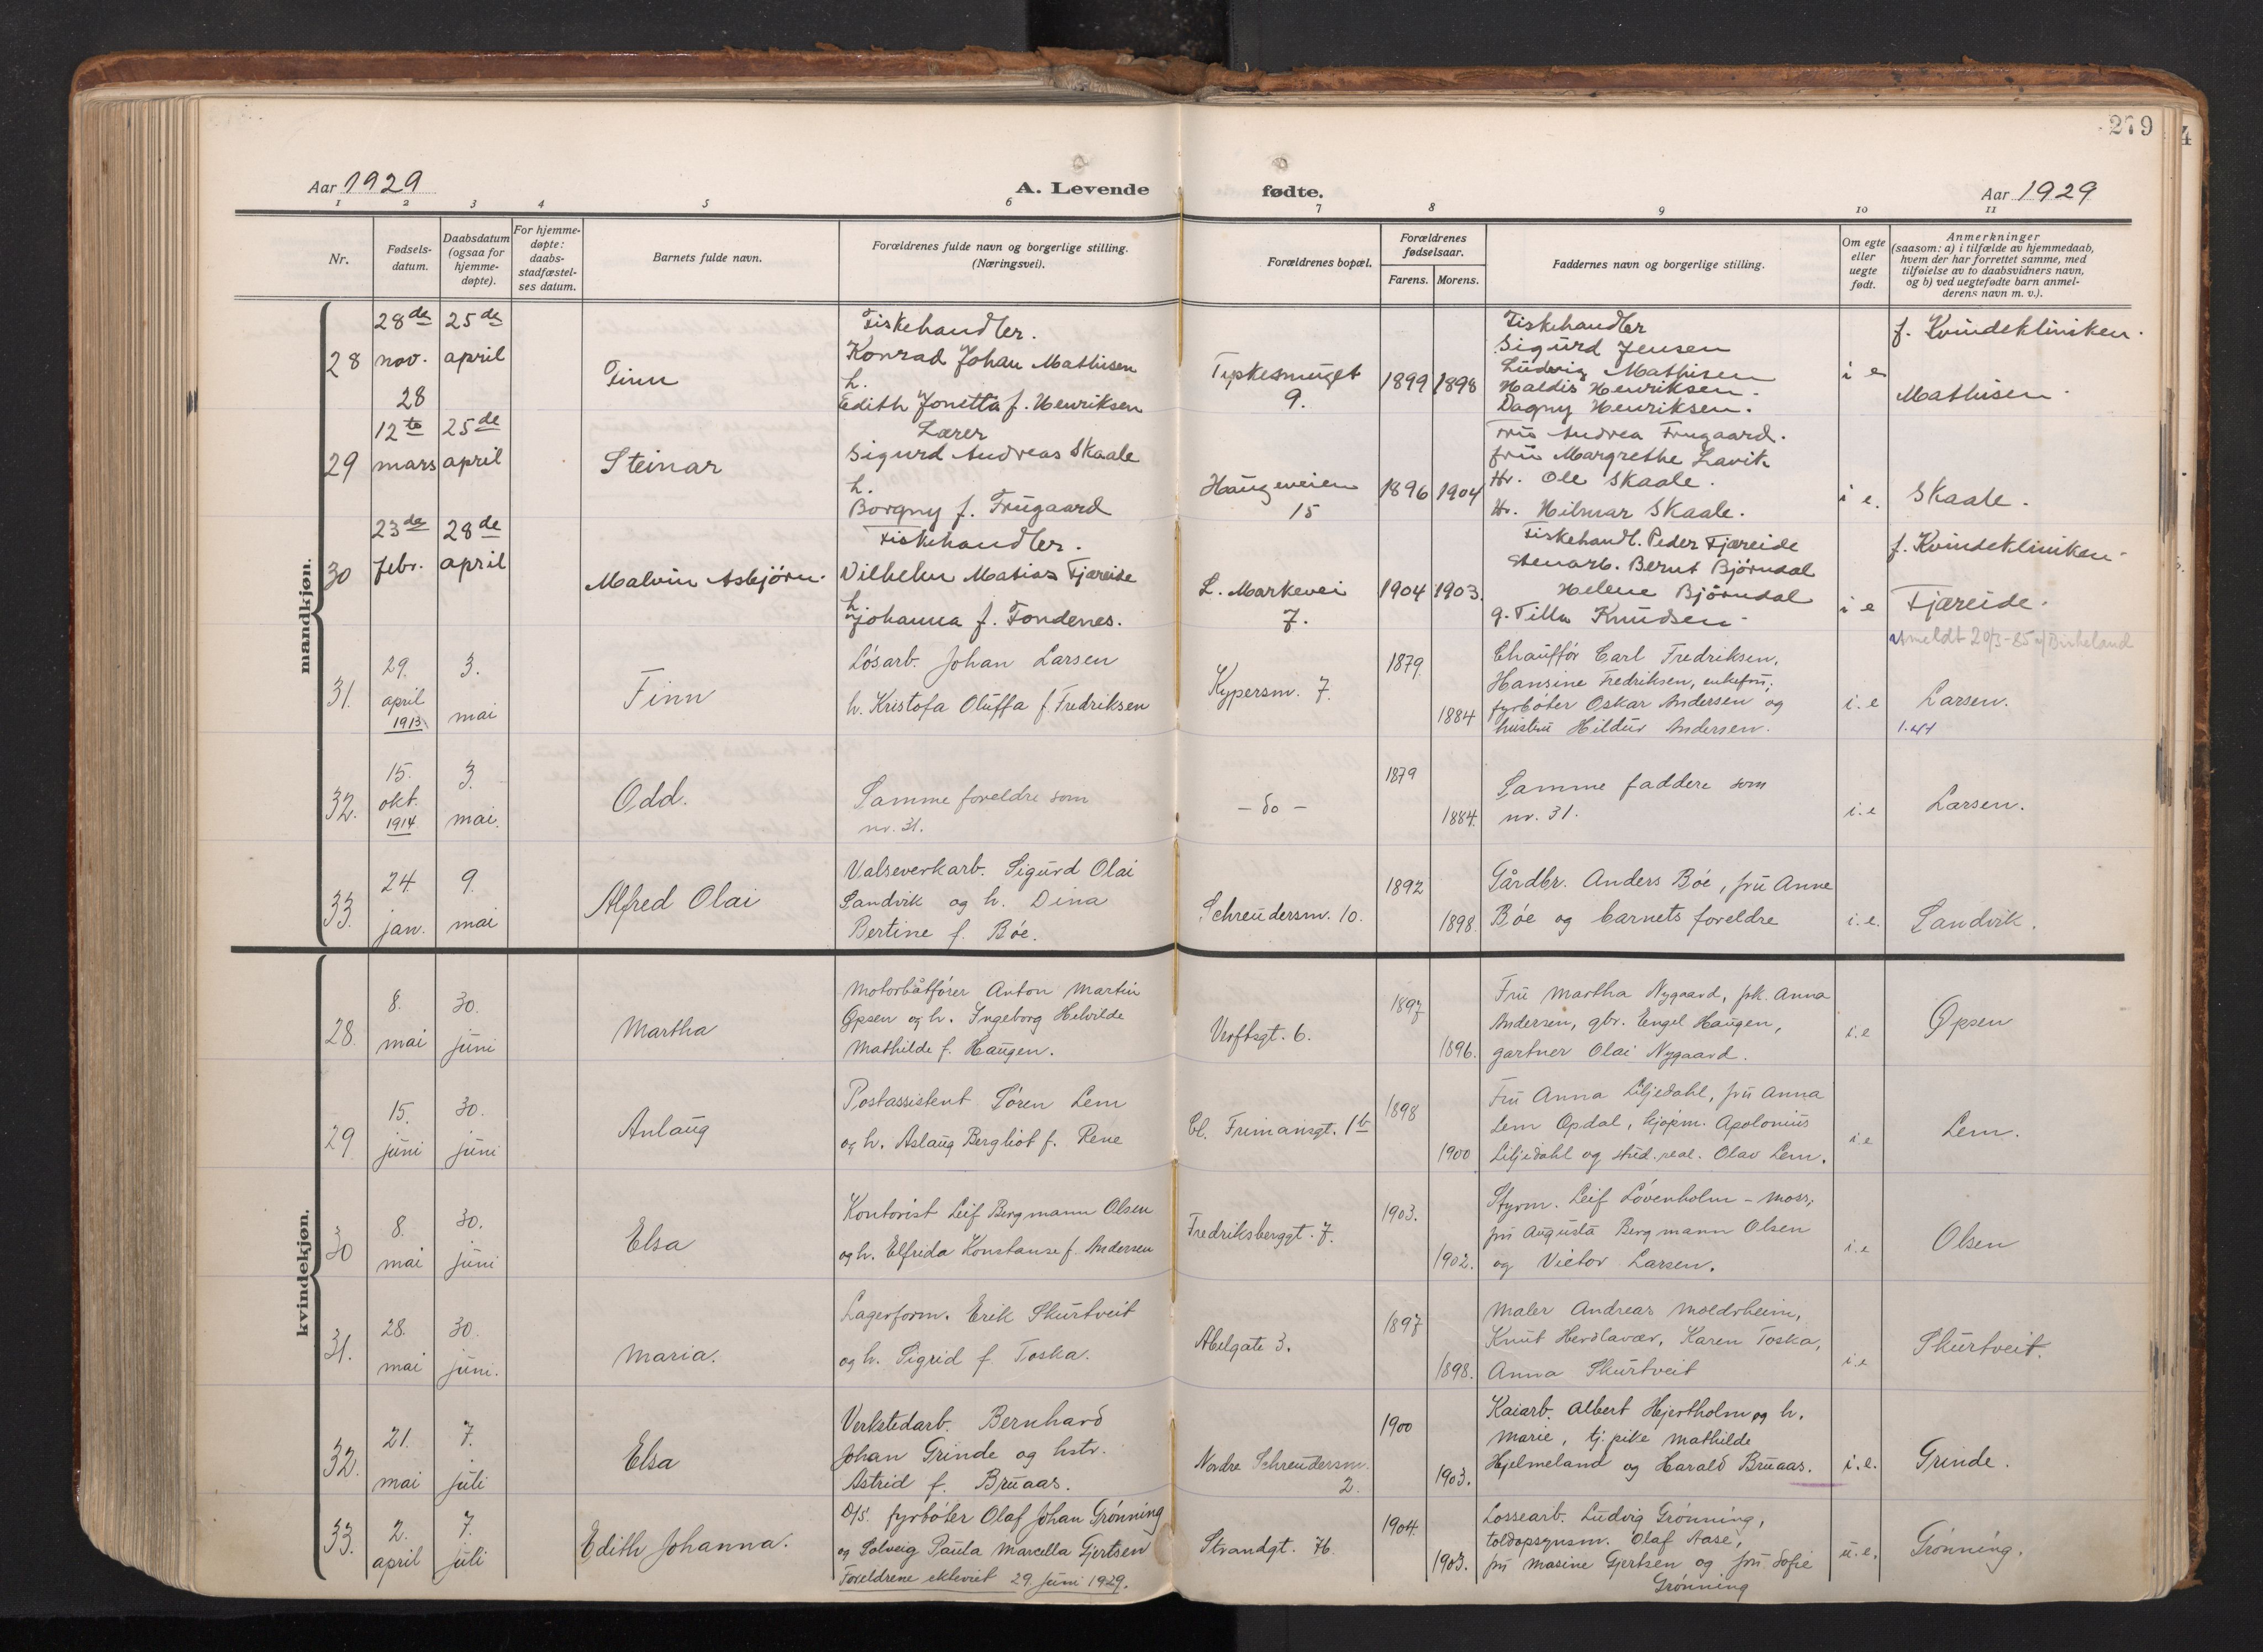 279
Aar 1929
A. Levende
fødte.
Aar 1929
1 2 3 4 5 6 7 8 9 10 11
Nr.
Fødsels-
datum.
Daabsdatum
(ogsaa for
hjemme-
døpte).
For hjemme-
døpte:
daabs-
stadfæstel-
ses datum.
Barnets fulde navn.
Forældrenes fulde navn og borgerlige stilling.
(Næringsvei).
Forældrenes bopæl.
Forældrenes
fødselsaar.
Farens. Morens.
Faddernes navn og borgerlige stilling.
Om egte
eller
uegte
født.
Anmerkninger
(saasom: a) i tilfælde av hjemmedaab,
hvem der har forrettet samme, med
tilføielse av to daabsvidners navn,
og b) ved uegtefødte barn anmel-
derens navn m. v.).
mandkjøn.
28
28de
nov.
28
25de
april
Finn
Fiskehandler.
Konrad Johan Mathisen
h.
Edith Jonetta f. Henriksen
9.
1899 1898
Fiskehandler
Sigurd Jensen
Ludvig Mathisen
Haldis Henriksen.
Dagny Henriksen.
i e
f. Kvindekliniken.
Mathisen.
29
12te
mars
25de
april
Steinar
Lærer
Sigurd Andreas Skaale
h.
Borgny f. Frugaard
Haugeveien
15
1896 1904
Fru Andrea Frugaard.
fru Margrethe Lavik
Hr. Ole Skaale.
Hr. Hilmar Skaale.
i e.
Skaale.
30
23de
febr.
28de
april
Malvin Asbjørn.
Fiskehandler.
Vilhelm Matias Fjæreide
h.
Johanna f. Fondenes.
L. Markevei
7.
1904 1903.
Fiskehandl. Peder Fjæreide
Stenarb. Bernt Bjørndal
Helene Bjørndal
g. Tilla Knudsen
i e
f. Kvindekliniken
Fjæreide.
31.
29.
april
1913
3.
mai
Finn
Løsarb. Johan Larsen
h. Kristofa Oluffa f. Fredriksen
Kypersm. 7.
1879
1884
Chauffør Carl Fredriksen,
Hansine Fredriksen, enkefru,
fyrbøter Oskar Andersen og
hustru Hildur Andersen.
i. e
Larsen.
32.
15.
okt.
1914
3.
mai.
Odd.
Samme foreldre som
nr. 31.
- do -
1879
1884.
Samme faddere som
nr. 31.
i. e
Larsen.
33.
24.
jan.
9.
mai
Alfred Olai
Valseverkarb. Sigurd Olai
Sandvik og h. Dina
Bertine f. Bøe.
Schreudersm. 10.
1892
1898.
Gårdbr. Anders Bøe, fru Anne
Bøe og barnets foreldre
i. e.
Sandvik.
kvindekjøn.
28.
8.
mai
30.
juni
Martha
Motorbåtfører Anton Martin
Opsen og h. Ingeborg Helvilde
Mathilde f. Haugen.
Verftsgt. 6.
1897
1896.
Fru Martha Nygaard, frk. Anna
Andersen, gbr. Engel Haugen,
gartner Olai Nygaard.
i. e
Opsen
29.
15.
juni
30.
juni
Anlaug
Postassistent Søren Lem
og h. Aslaug Bergliot f. Rene
Cl. Frimansgt. 1b
1898
1900
Fru Anna Liljedahl, fru Anna
Lem Opdal, kjøpm. Apolonius
Liljedahl og stud. real. Olav Lem.
i. e
Lem.
30
8.
mai
30.
juni
Elsa
Kontorist Leif Bergmann Olsen
og h. Elfrida Konstanse f. Andersen
Fredriksberggt. 7.
1903.
1902.
Styrm. Leif Løvenholm - Moss,
fru Augusta Bergmann Olsen
og Victor Larsen.
i. e
Olsen
31.
28.
mai
30.
juni.
Maria.
Lagerform. Erik Skurtveit
og h. Sigrid f. Toska.
Abelgate 3.
1897
1898.
Maler Andreas Moldrheim,
Knut Herdlavær, Karen Toska,
Anna Skurtveit
i. e
Skurtveit.
32.
21.
mai
7.
juli
Elsa
Verkstedarb. Bernhard
Johan Grinde og hstr.
Astrid f. Bruaas.
Nordre Schreudersm.
2.
1900
1903.
Kaiarb. Albert Hjertholm og h.
Marie, tj. pike Mathilde
Hjelmeland og Harald Bruaas.
i. e.
Grinde.
33.
2.
april
7.
juli
Edith Johanna.
D/S. fyrbøter Olaf Johan Grønning
og Solveig Paula Marcella Gjertsen
Foreldrene ekteviet 29. juni 1929.
Strandgt. 76.
1904.
1903.
Lossearb. Ludvig Grønning,
toldopsynsm. Olaf Aase,
fru Masine Gjertsen og fru Sofie
Grønning
u. e.
Grønning.